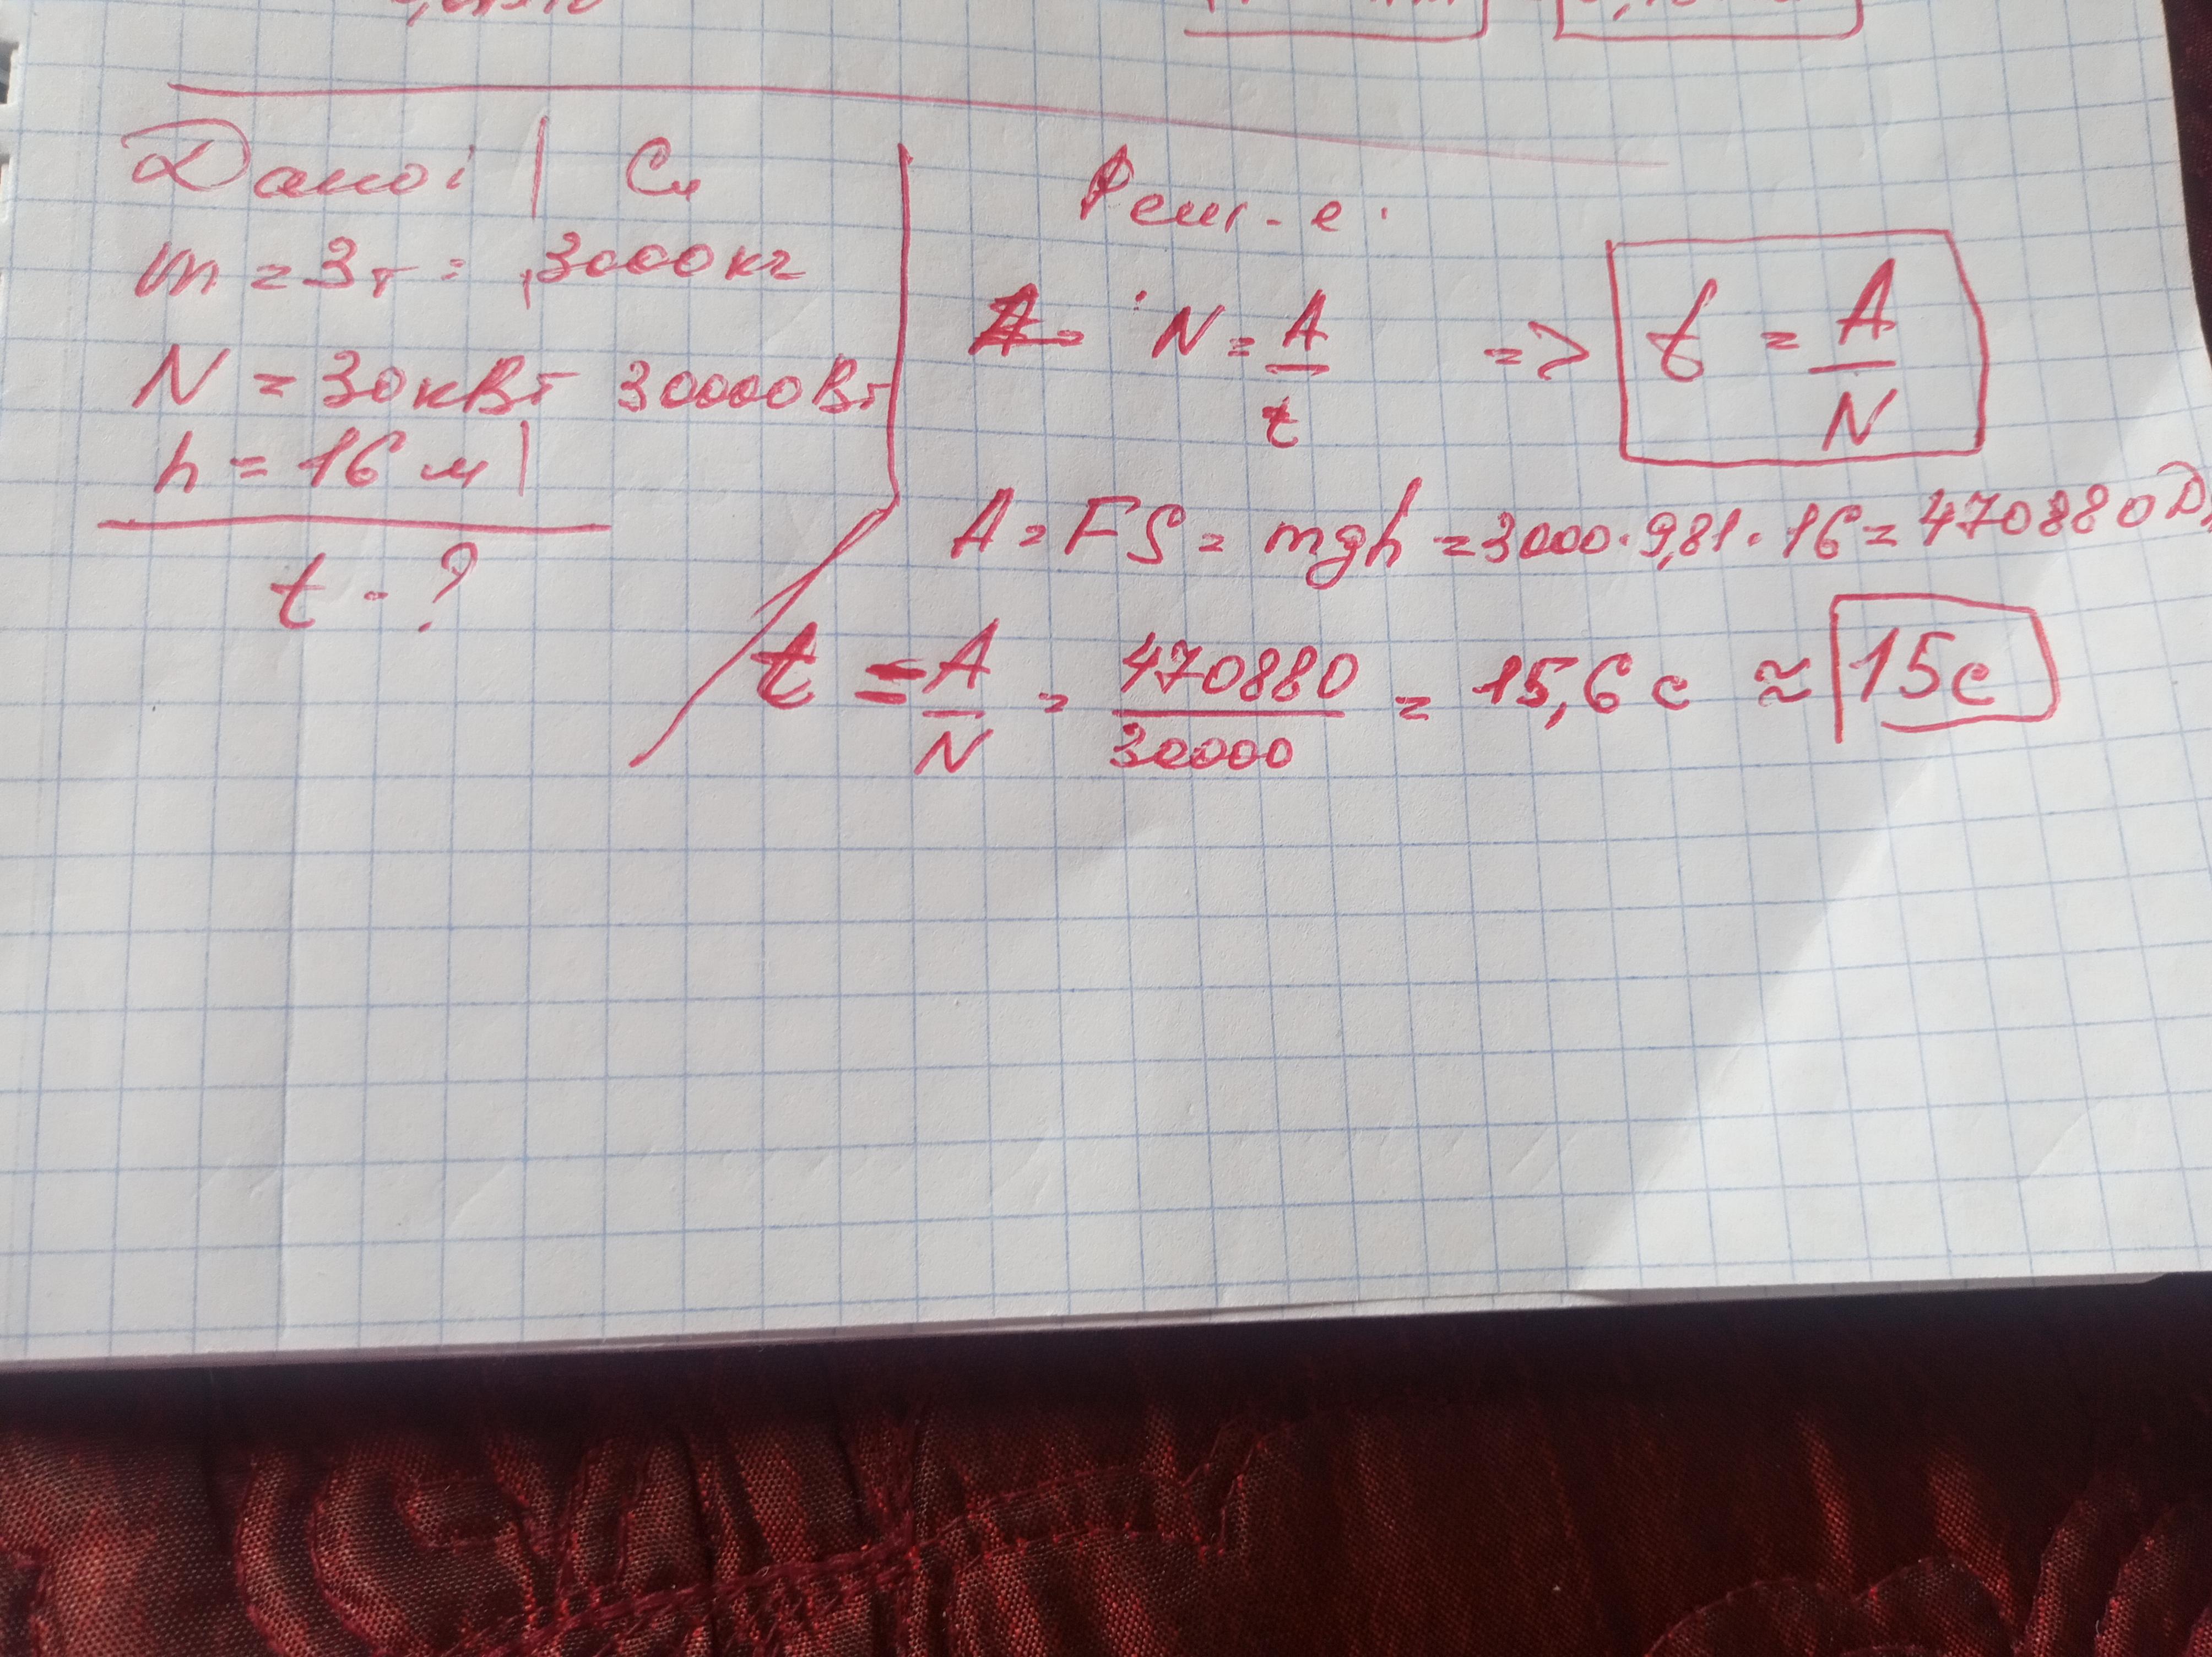 Дано: | Си
m = 3т = 3000кг
N = 30кВт 30000Вт
h = 16 м
t - ?
Реш-е.
N = A/t => t = A/N
A = FS = mgh = 3000 · 9,81 · 16 = 470880 Д
t = A/N = 470880/30000 = 15,6 с ≈ 15с